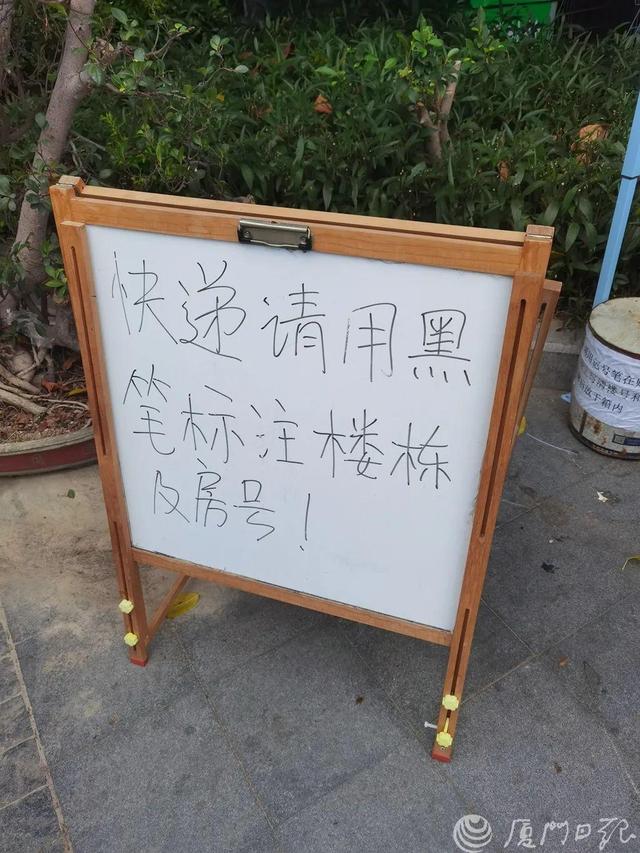 快递请用黑
笔标注楼栋
及房号！
厦门日报